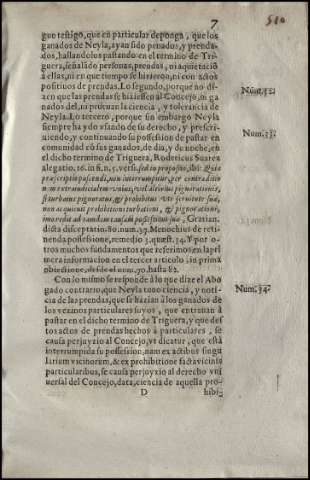 7
510
gue testigo, que en particular deponga, que los
ganados de Neyla, ayan sido penados, y prenda-
dos, hallandolos pastando en el termino de Tri-
guera, señalado personas, prendas, ni aquietacio
a ellas, ni en que tiempo se hizieron, ni con actos
positiuos de prendas. Lo segundo, porque no di-
zen que las prendas se hiziessen al Concejo, ni ga
nados del, ni prueuan la ciencia, y tolerancia de
Neyla. Lo tercero, porque sin embargo Neyla
siempre ha ydo vsando de su derecho, y prescri-
uiendo, y continuando su possession de pastar en
comunidad con sus ganados, de dia, y de noche, en
el dicho termino de Triguera, Rodericus Suarez
alegatio. 16. in fi. n. 5. versi. sed in proposito, ibi: Quia
præscriptio pascendi, non interrumpitur, per contradictio
nem extraiudicialem
si turbatus pignoratus, & prohibitus vti seruitute sua,
non acquieuit prohibenti turbationi, & pignorationi,
imo redia ad eandem causam possessionis suæ, Gratian.
dicta disceptatio. 80. num. 37. Menochius de retin-
tienda possessione, remedio 3. quæst. 34. Y por o-
tros muchos fundamentos que referimos en la pri
mera informacion en el tercer articulo, in prima
obiectione, desde el num. 70. hasta 82.
Con lo mismo se responde a lo que dize el Abo
gado contrario, que Neyla tuuo ciencia, y noti-
cia de las prendas, que se hazian a los ganados de
los vezinos particulares suyos, que entrauan à
pastar en el dicho termino de Triguera, y que des
tos actos de prendas hechos à particulares, se
causa perjuyzio al Concejo, vt dicatur, que està
interrumpida su possession, nam ex actibus singu
larium vicinorum, & ex prohibitione facta vicinis
particularibus, se causa perjuyzio al derecho vni
uersal del Concejo, data, ciencia de aquella pro-
D hibi-
Núm. 32.
Num. 33.
Num. 34.